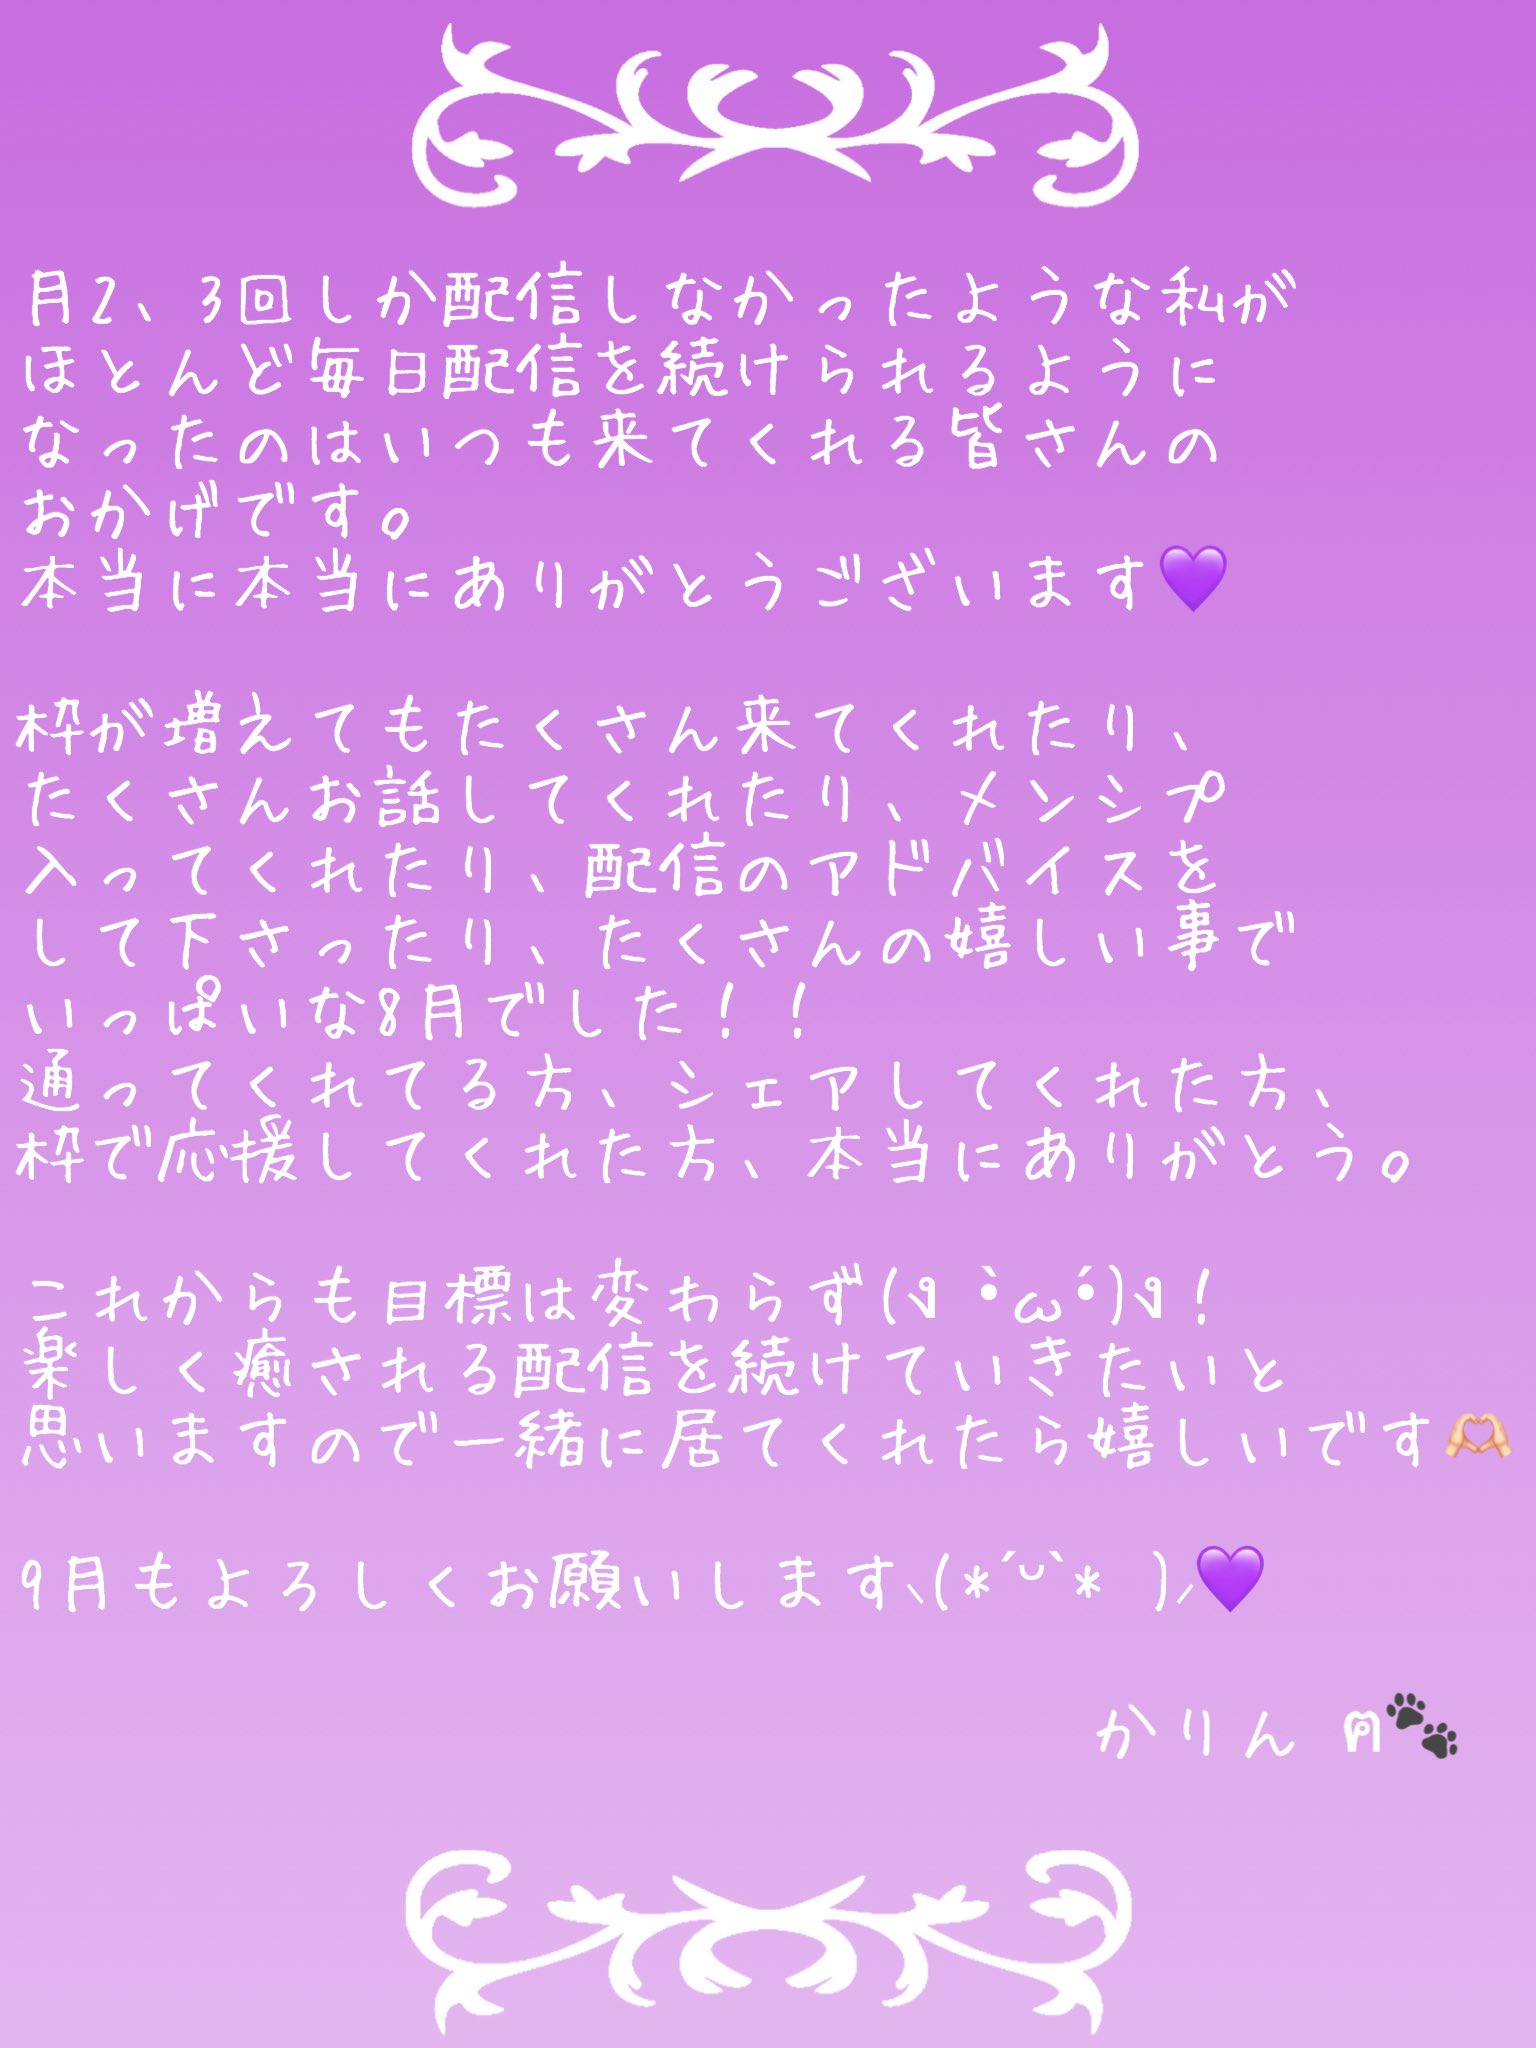 月2、3回しか配信しなかったような私が
ほとんど毎日配信を続けられるように
なったのはいつも来てくれる皆さんの
おかげです。
本当に本当にありがとうございます💜
枠が増えてもたくさん来てくれたり、
たくさんお話してくれたり、メンシプ
入ってくれたり、配信のアドバイスを
して下さったり、たくさんの嬉しい事で
いっぱいな8月でした！！
通ってくれてる方、シェアしてくれた方、
枠で応援してくれた方、本当にありがとう。
これからも目標は変わらず(ง •̀ω•́)ง！
楽しく癒される配信を続けていきたいと
思いますので一緒に居てくれたら嬉しいです🫶🏻
9月もよろしくお願いします⸜(*ˊᵕˋ* )⸝💜
かりん ฅ🐾